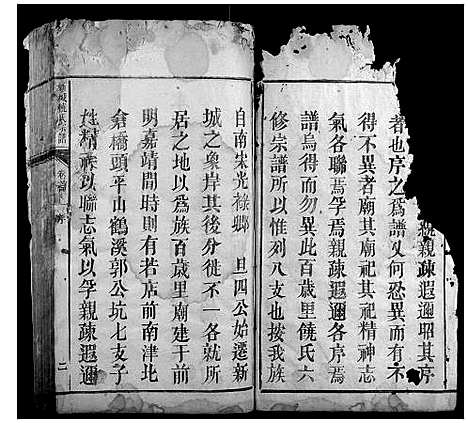 統親疎遐邇昭其序
者也序之為譜又何忍異而有不
得不異者廟其廟祀其祀精神志
氣各聯焉孚焉親疎遐邇各序焉
譜烏得而勿異此百歲里饒氏六
修宗譜所以惟列八支也按我族
自南宋光祿卿 旦四公始遷新
城之象岸其後分徙不一各就所
居之地以為族百歲里廟建于前
明嘉靖間時則有若店前南津北
倉橋頭平山鶴溪郭公坑七支子
姓精神以聯志氣以孚親疎遐邇
卷首 序
二